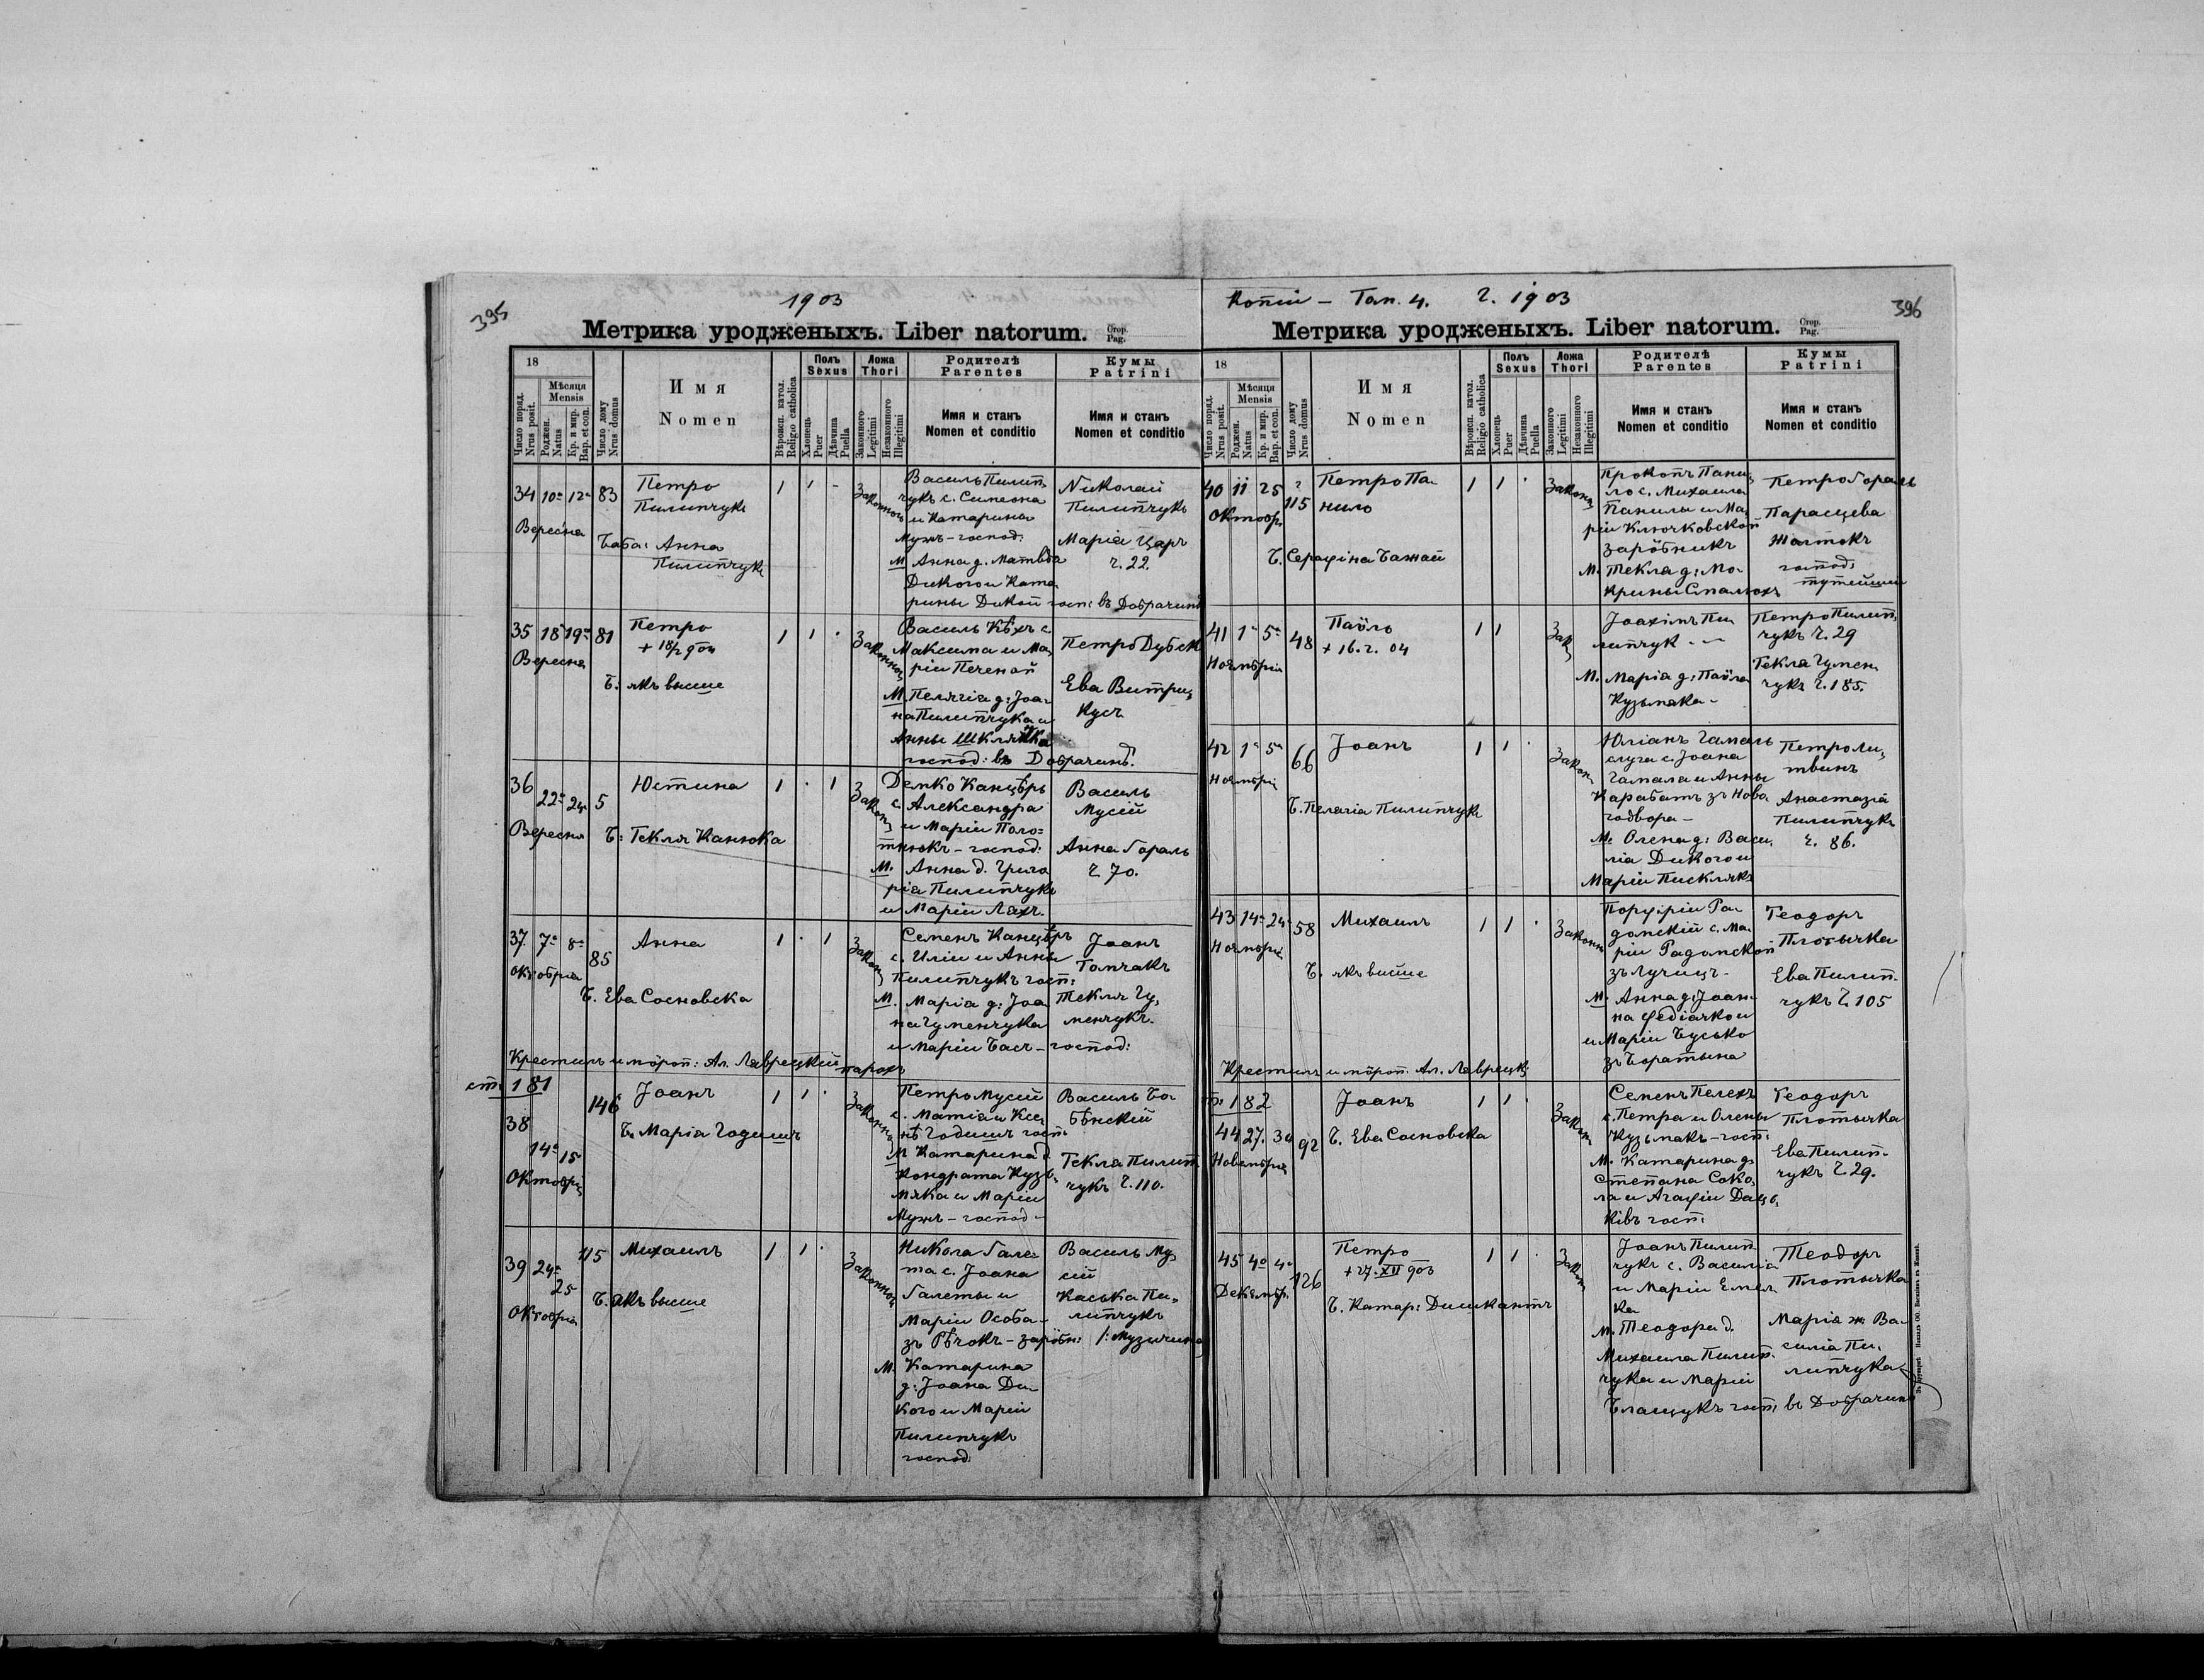 395
1903
Метрика уродженыхъ. Liber natorum. Стор. Pag.
18
Число поряд. Nrus posit.
Мѣсяця Mensis
Роджен. Natus
Кр. и мир. Bap. et con.
Число дому Nrus domus
Имя Nomen
Вѣроисп. катол. Religio catholica
Полъ Sexus
Хлопець Puer
Дѣвчина Puella
Ложа Thori
Законного Legitimi
Незаконного Illegitimi
Родителѣ Parentes
Имя и станъ Nomen et conditio
Кумы Patrini
Имя и станъ Nomen et conditio
34 10 12 83
Вересня
Петро
Пилипчукъ
Баба: Анна
Пилипчукъ
1 1 -
Законног
Василь Пилип
чукъ с. Симеона
и Катарины
Мужъ - господ.
М. Анна д. Матвѣя
Дикого и Ката
рины Дикой госп: въ Добрачинѣ
Николай
Пилипчукъ
Марія Царъ
ч. 22.
35 18 19 81
Вересня
Петро
+ 18/2 904
Б: якъ высше
1 1 .
Законног
Василь Кѣхъ с.
Максима и Ма
ріи Печеной
М. Пелягіа д: Јоа
на Пилипчука и
Анны Шклянка
господ: въ Добрачинѣ.
Петро Дубск
Ева Витриц
Кусъ
36 22 24 5
Вересня
Юстина
Б: Текля Канюка
1 . 1
Законн
Демко Канцѣръ
с. Александра
и Маріи Поло=
тнюкъ - господ:
М. Анна д. Григо
ріа Пилипчукъ
и Маріи Ляхъ.
Василь
Мусій
Анна Гораль
ч 70.
37 7 8 85
Октобріа
Анна
Б. Ева Сосновска
1 . 1
Законн
Семенъ Канцѣръ
с. Иліи и Анны
Пилипчукъ госп:
М. Марія д: Јоа
на Гуменчука
и Маріи Басъ - господ:
Јоанъ
Томчакъ
Текля Гу,
менчукъ.
Крестилъ и мѵроп: Ал. Лаврецкій парохъ
ст. 181
38
14 15
Октобрія
146
Јоанъ
Б. Марія Годишъ
1 1 .
Законног
Петро Мусій
с. Матіа и Ксе
нѣ Годишъ госп.
М Катарина д.
Кондрата Кузь,
мяка и Маріи
Мужъ - господ -
Василь Ба
бѣнскій
Текла Пилип
чукъ ч. 110.
39 24 25 115
Октобріа
Михаилъ
Б. якъ высше
1 1 .
Законног
Никола Гале
та с. Јоана
Галеты и
Маріи Особа -
зъ Рѣчокъ - заробн:
М. Катарина
д: Јоана Ди
кого и Маріи
Пилипчукъ
господ.
Василь Му,
сій
Каська Пи,
липчукъ
/: Музичина
Копіи - Том. 4. г. 1903
396
Метрика уродженыхъ. Liber natorum. Стор. Pag.
18
Число поряд. Nrus posit.
Мѣсяця Mensis
Роджен. Natus
Кр. и мир. Bap. et con.
Число дому Nrus domus
Имя Nomen
Вѣроисп. катол. Religio catholica
Полъ Sexus
Хлопець Puer
Дѣвчина Puella
Ложа Thori
Законного Legitimi
Незаконного Illegitimi
Родителѣ Parentes
Имя и станъ Nomen et conditio
Кумы Patrini
Имя и станъ Nomen et conditio
40 11 25 ? 115
Октобр.
Петро Па
нило
Б. Серафіна Бажай
1 1 .
Законн
Прокопъ Пани,
ло с. Михаила
Панилы и Ма,
ріи Ключковской
заробникъ
М. Текла д: Мо
крины Смалюхъ
Петро Гораль
Парасцева
Жолтокъ
господ:
тутейши
41 1 5 48
Ноямбріа
Паѵло
+ 16. 2. 04
1 1
Зак
Јоахімъ Пи
липчук - -
М. Марія д: Паѵла
Кузьмяка -
Петро Пилип,
чукъ ч. 29
Текля Гумен
чукъ ч. 185.
42 1 5 66
Ноямбрі
Јоанъ
Б. Пелагіа Пилипчукъ
1 1 .
Законн
Юліанъ Гамаль
слуга с. Јоана
Гамала и Анны
Карабатъ зъ Ново
годвора -
М. Олена д: Васи,
ліа Дикого и
Маріи Писклякъ
Петро Ли,
твинъ
Анастазіа
Пилипчукъ
ч. 86.
43 14 24 58
Ноямбрі
Михаилъ
Б. якъ висше
1 1 .
Законн
Порфірій Ра
домскій с. Ма
ріи Радомской
зъ Лучицъ -
М. Анна д: Јоан
на Федіячко и
и Маріи Бусько
зъ Боратына
Теодоръ
Плотычка
Ева Пилип
чукъ ч. 105
Крестилъ и мѵроп. Ал. Лаврецк
ст. 182
44 27. 30 92
Новембрія
Јоанъ
Б. Ева Сосновска
1 1 .
Законн
Семенъ Пелехъ
с. Петра и Олены
Кузьмакъ - госп:
М. Катарина д
Степана Соко,
ла и Агафіи Дацю,
ківъ госп:
Теодоръ
Плотычка
Ева Пилип-
чукъ ч. 29.
45 4 4 126
Декамбр.
Петро
+ 27. XII 903
Б. Катар: Дишкантъ
1 1 .
Законн
Јоанъ Пилип
чукъ с. Василіа
и Маріи Емел
ка
М. Теодора д.
Михаила Пилип
чука и Маріи
Блащукъ госп: въ Добрачинѣ
Теодоръ
Плотычка
Марія ж Ва
силіа Пи,
липчука